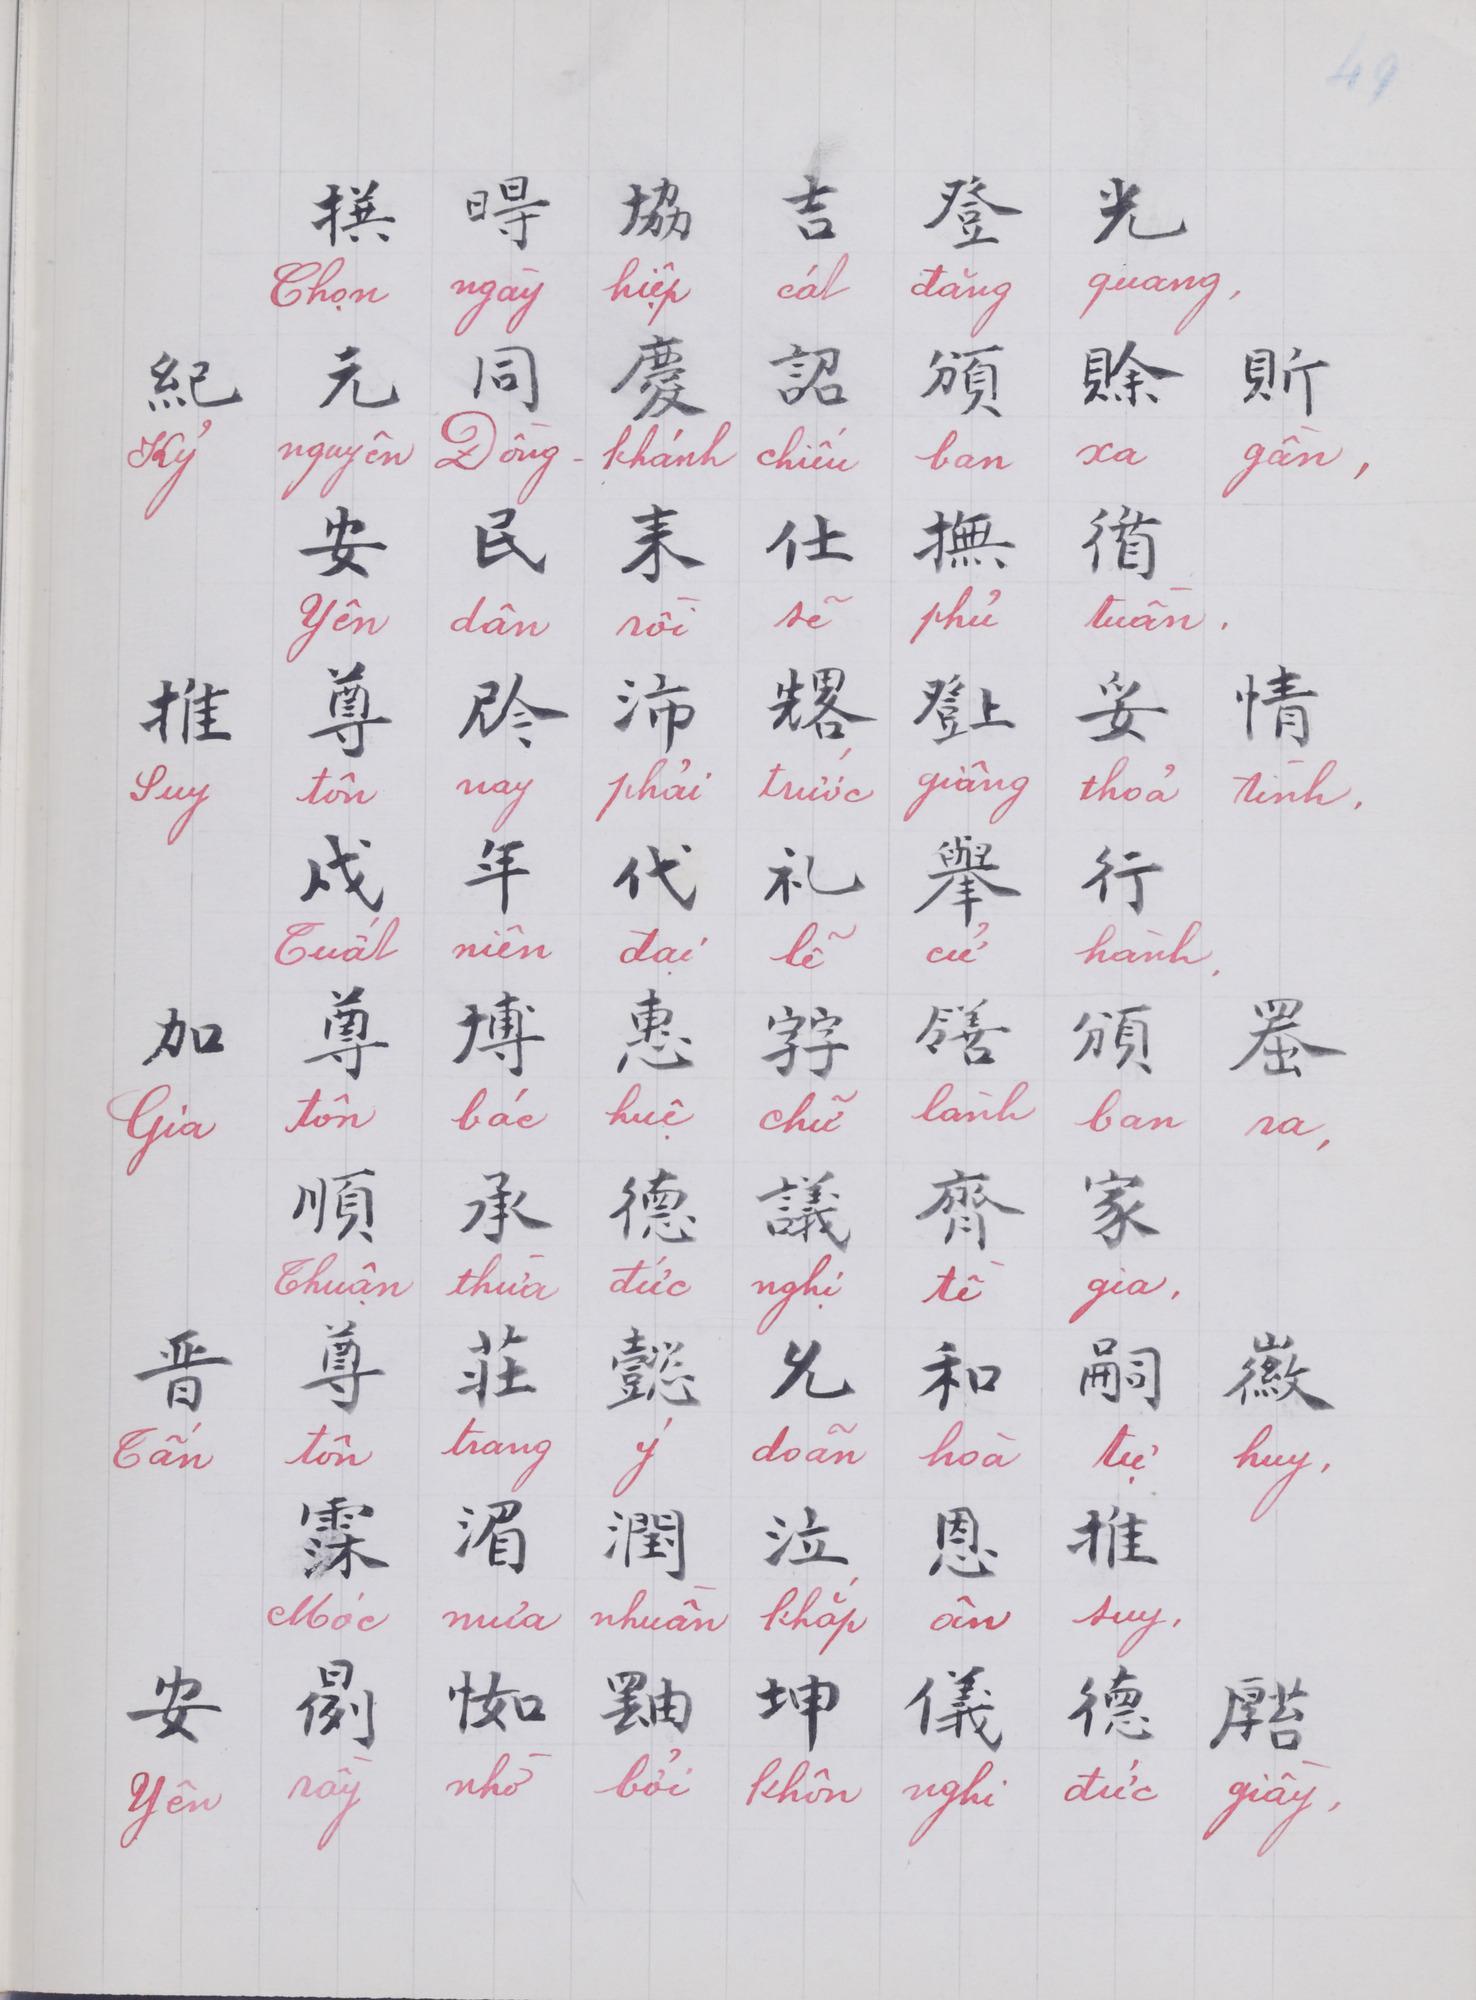 49
撰 㝵 協 吉 登 光
Chọn ngày hiệp cát đăng quang,
紀 元 同 慶 詔 頒 賖 𧵆
Kỷ nguyên Đồng-khánh chiếu ban xa gần,
安 民 耒 仕 撫 循
Yên dân rồi sẽ phủ tuần.
推 尊 沛 妥 情
Suy tôn nay phải trước giâng thoả tình.
戌 年 代 礼 舉 行
Tuất niên đại lễ cử hành,
加 尊 博 惠 𡨸 頒
Gia tôn bác huệ chữ lành ban ra,
順 承 德 議 齊 家
Thuận thừa đức nghị tề gia,
晋 尊 莊 懿 允 和 嗣 徽
Tấn tôn trang ý doãn hoà tự huy,
霂 湄 潤 泣 恩 推
Móc mưa nhuần khắp ân suy,
安 𢘾 坤 儀 德
Yên rầy nhờ bởi khôn nghi đức giầy,